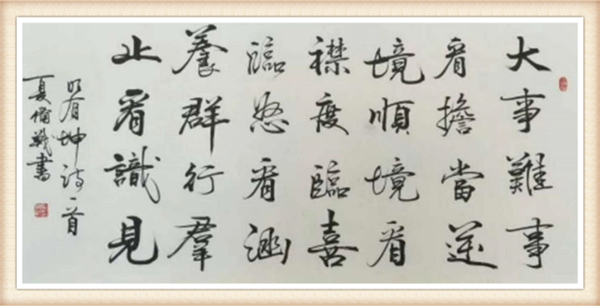 大事難事
看擔當逆
境順境看
襟度臨喜
臨怒看涵
養群行羣
止看識見
坤诗一首
夏俻戰書